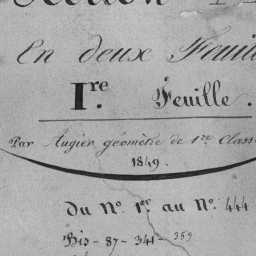 En deux Feuil
I.re Feuille.
Par Augier géomètre de 1re Class
1849.
Du No. 1er au No. 444
Bis - 87 - 341 - 359